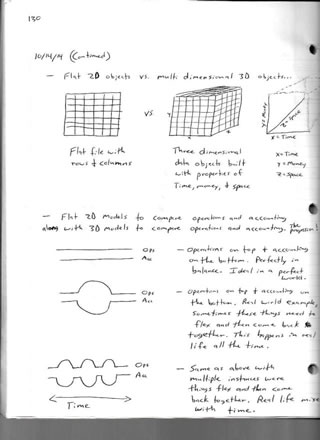 130
10/14/14 (Continued)
— Flat 2D objects vs. multi dimensional 3D objects...
vs.
Y
X
Z
Y=Money
Z=Space
X=Time
Flat file with
rows & columns
Three dimensional
data objects built
with properties of
Time, money, & space
X=Time
Y=Money
Z=Space
— Flat 2D Models to compare operations and accounting
along with 3D models to compare operations and accounting. The progression!
Ops
Acc
— Operations on top & accounting
on the bottom. Perfectly in
balance. Ideal in a perfect
world.
Ops
Acc
— Operations on top & accounting on
the bottom. Real world example,
sometimes these things need to
flex and then come back
together. This happens in real
life all the time.
Ops
Acc
Time
— Same as above with
multiple instances were
things flex and then come
back together. Real life mixed
with time.